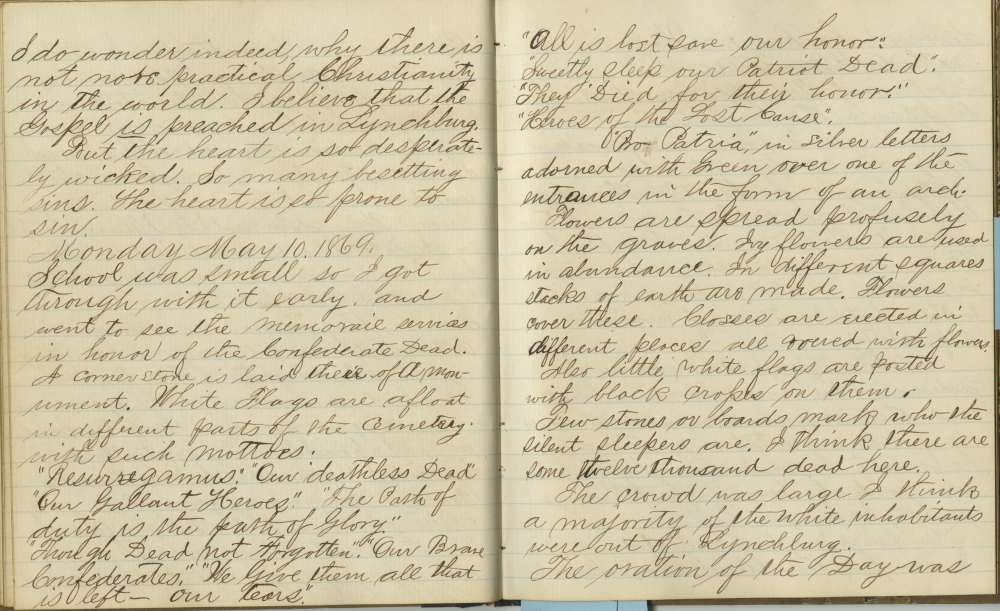 I do wonder indeed, why there is
not more practical Christianity
in the world. I believe that the
Gospel is preached in Lynchburg.
But the heart is so desperate-
ly wicked. So many besetting
sins. The heart is so prone to
sin.
Monday May 10, 1869.
School was small so I got
through with it early, and
went to see the memoraie services
in honor of the Confederate Dead.
A corner stone is laid there of a mon-
ument. White Flags are afloat
in different parts of the cemetery.
with such mottoes.
"Resurregamus." "Our deathless Dead"
"Our Gallant Heroes". "The Path of
duty is the path of Glory"
"Though Dead not forgotten." "Our Brave
Confederates." "We give them all that
is left — our tears".
"All is lost save our honor."
"Sweetly sleep our Patriot Dead".
"They Died for their honor."
"Heroes of the Lost Cause".
"Pro Patria", in silver letters
adorned with Green over one of the
entrances in the form of an arch.
Flowers are spread profusely
on the graves. Ivy flowers are used
in abundance. In different squares
stacks of earth are made. Flowers
cover these. Closses are erected in
different places all covered with flowers.
Also little white flags are posted
with black crosses on them.
Few stones or boards mark who the
silent sleepers are. I think there are
some twelve thousand dead here.
The crowd was large I think
a majority of the white inhabitants
were out of Lynchburg.
The oration of the Day was